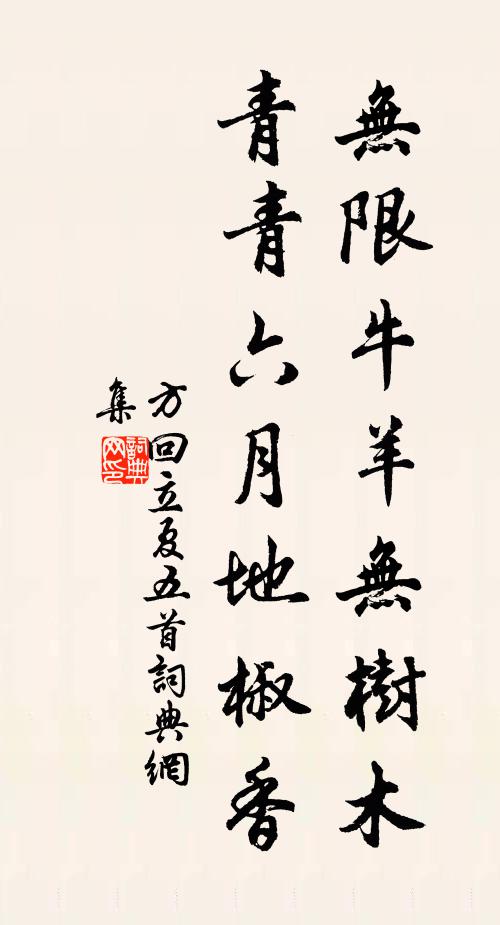 無限牛羊無樹木
青青六月地椒香
方回立夏五首詞典網
集
詞典
网印